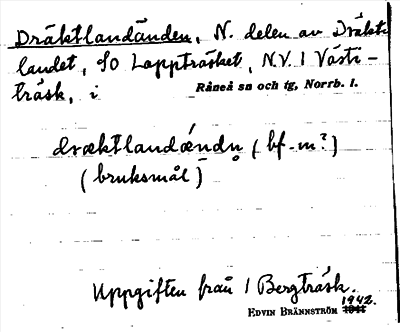 Dräktlandänden, N. delen av Dräkt-
landet, SO Lappträsket, N.V. I Västi-
träsk, i Råneå sn och tg, Norrb. l.
dræktlandǽndn̥ (bf. m?)
(bruksmål)
Uppgiften från I Bergträsk.
EDVIN BRÄNNSTRÖM 1942.
1941